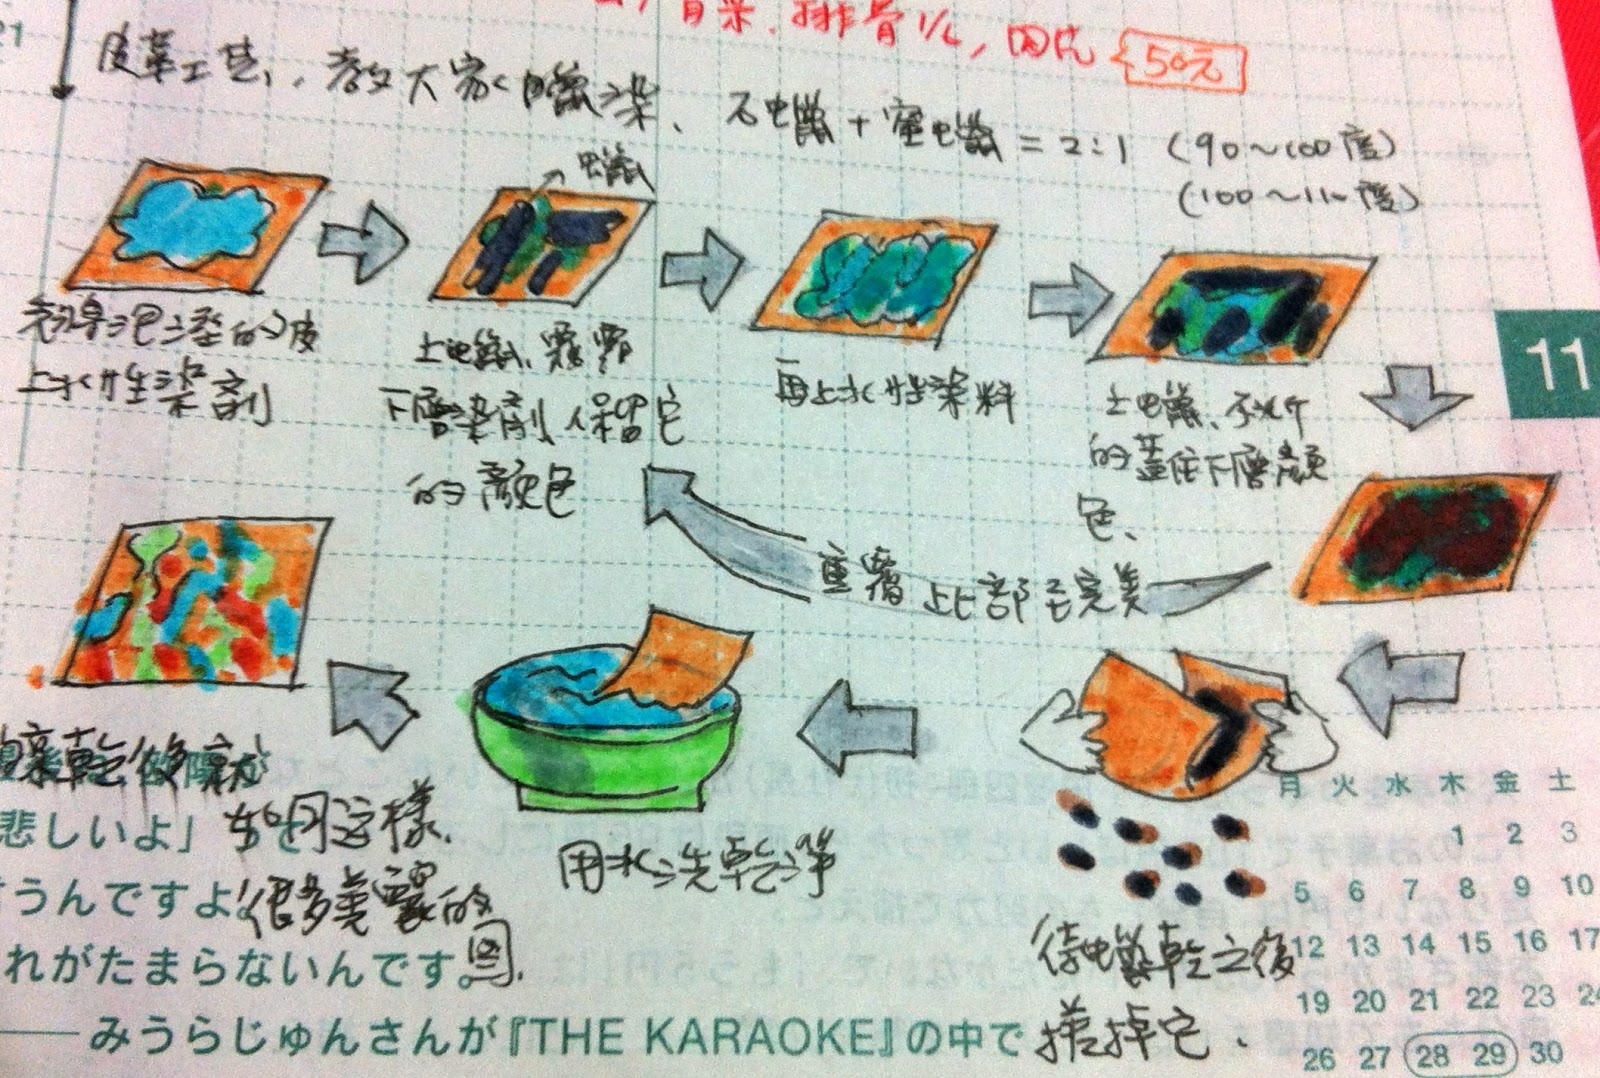 21
排骨1/2,
50元
皮革工芸,教大家蠟染、石蠟+蜜蠟=2:1 (90~100度)
(100~110度)
蠟
的皮
上水性染劑
上蠟、覆
下層染劑保留它
的顏色
再上水性染料
上蠟、
的蓋住下層顏
色、
11
重覆上上部至完美
乾後就
如同這樣、
很多美麗的
図.
用水洗乾淨
待蠟乾之後
搓掉它、
悲しいよ」
うんですよ。
れがたまらないんです。
みうらじゅんさんが『THE KARAOKE』の中で
月 火 水 木 金 土
1 2 3
5 6 7 8 9 10
12 13 14 15 16 17
19 20 21 22 23 24
26 27 28 29 30